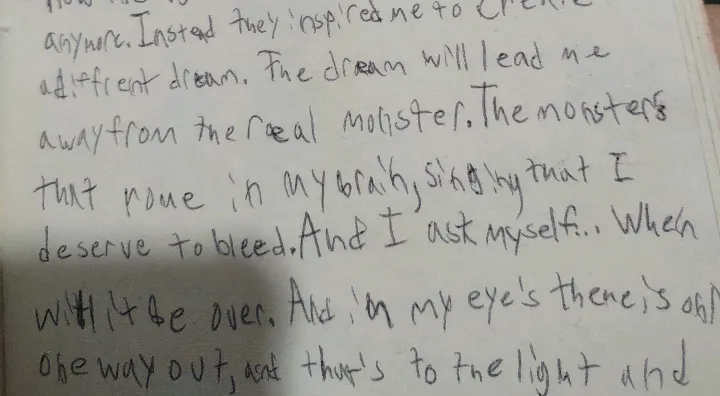 me to
anymore. Instead they inspired me to create
a diffrent dream. The dream will lead me
away from the real monster. The monsters
that rome in my brain, singing that I
deserve to bleed. And I ask myself... When
will it be over. And in my eye's there is only
one way out, and that's to the light and